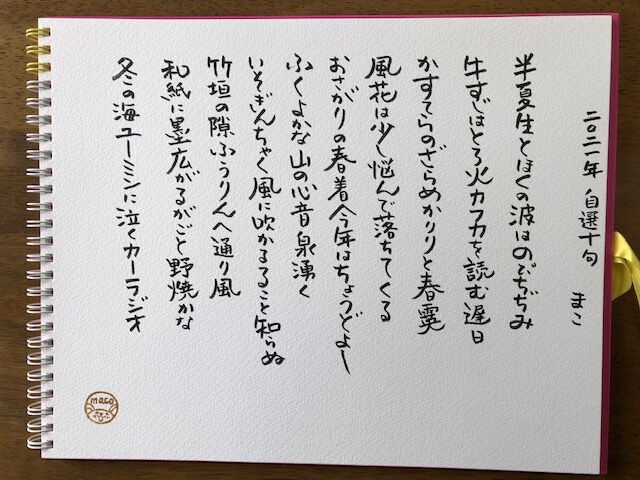 二〇二一年 自選十句 まこ
半夏生とほくの波はのびちぢみ
牛すじはとろ火カフカを読む遅日
かすてらのざらめかりりと春霙
風花は少し悩んで落ちてくる
おさがりの春着今年はちょうどよし
ふくよかな山の心音泉湧く
いそぎんちゃく風に吹かるること知らぬ
竹垣の隙ふうりんへ通り風
和紙に墨広がるがごと野焼かな
冬の海ユーミンに泣くカーラジオ
maco